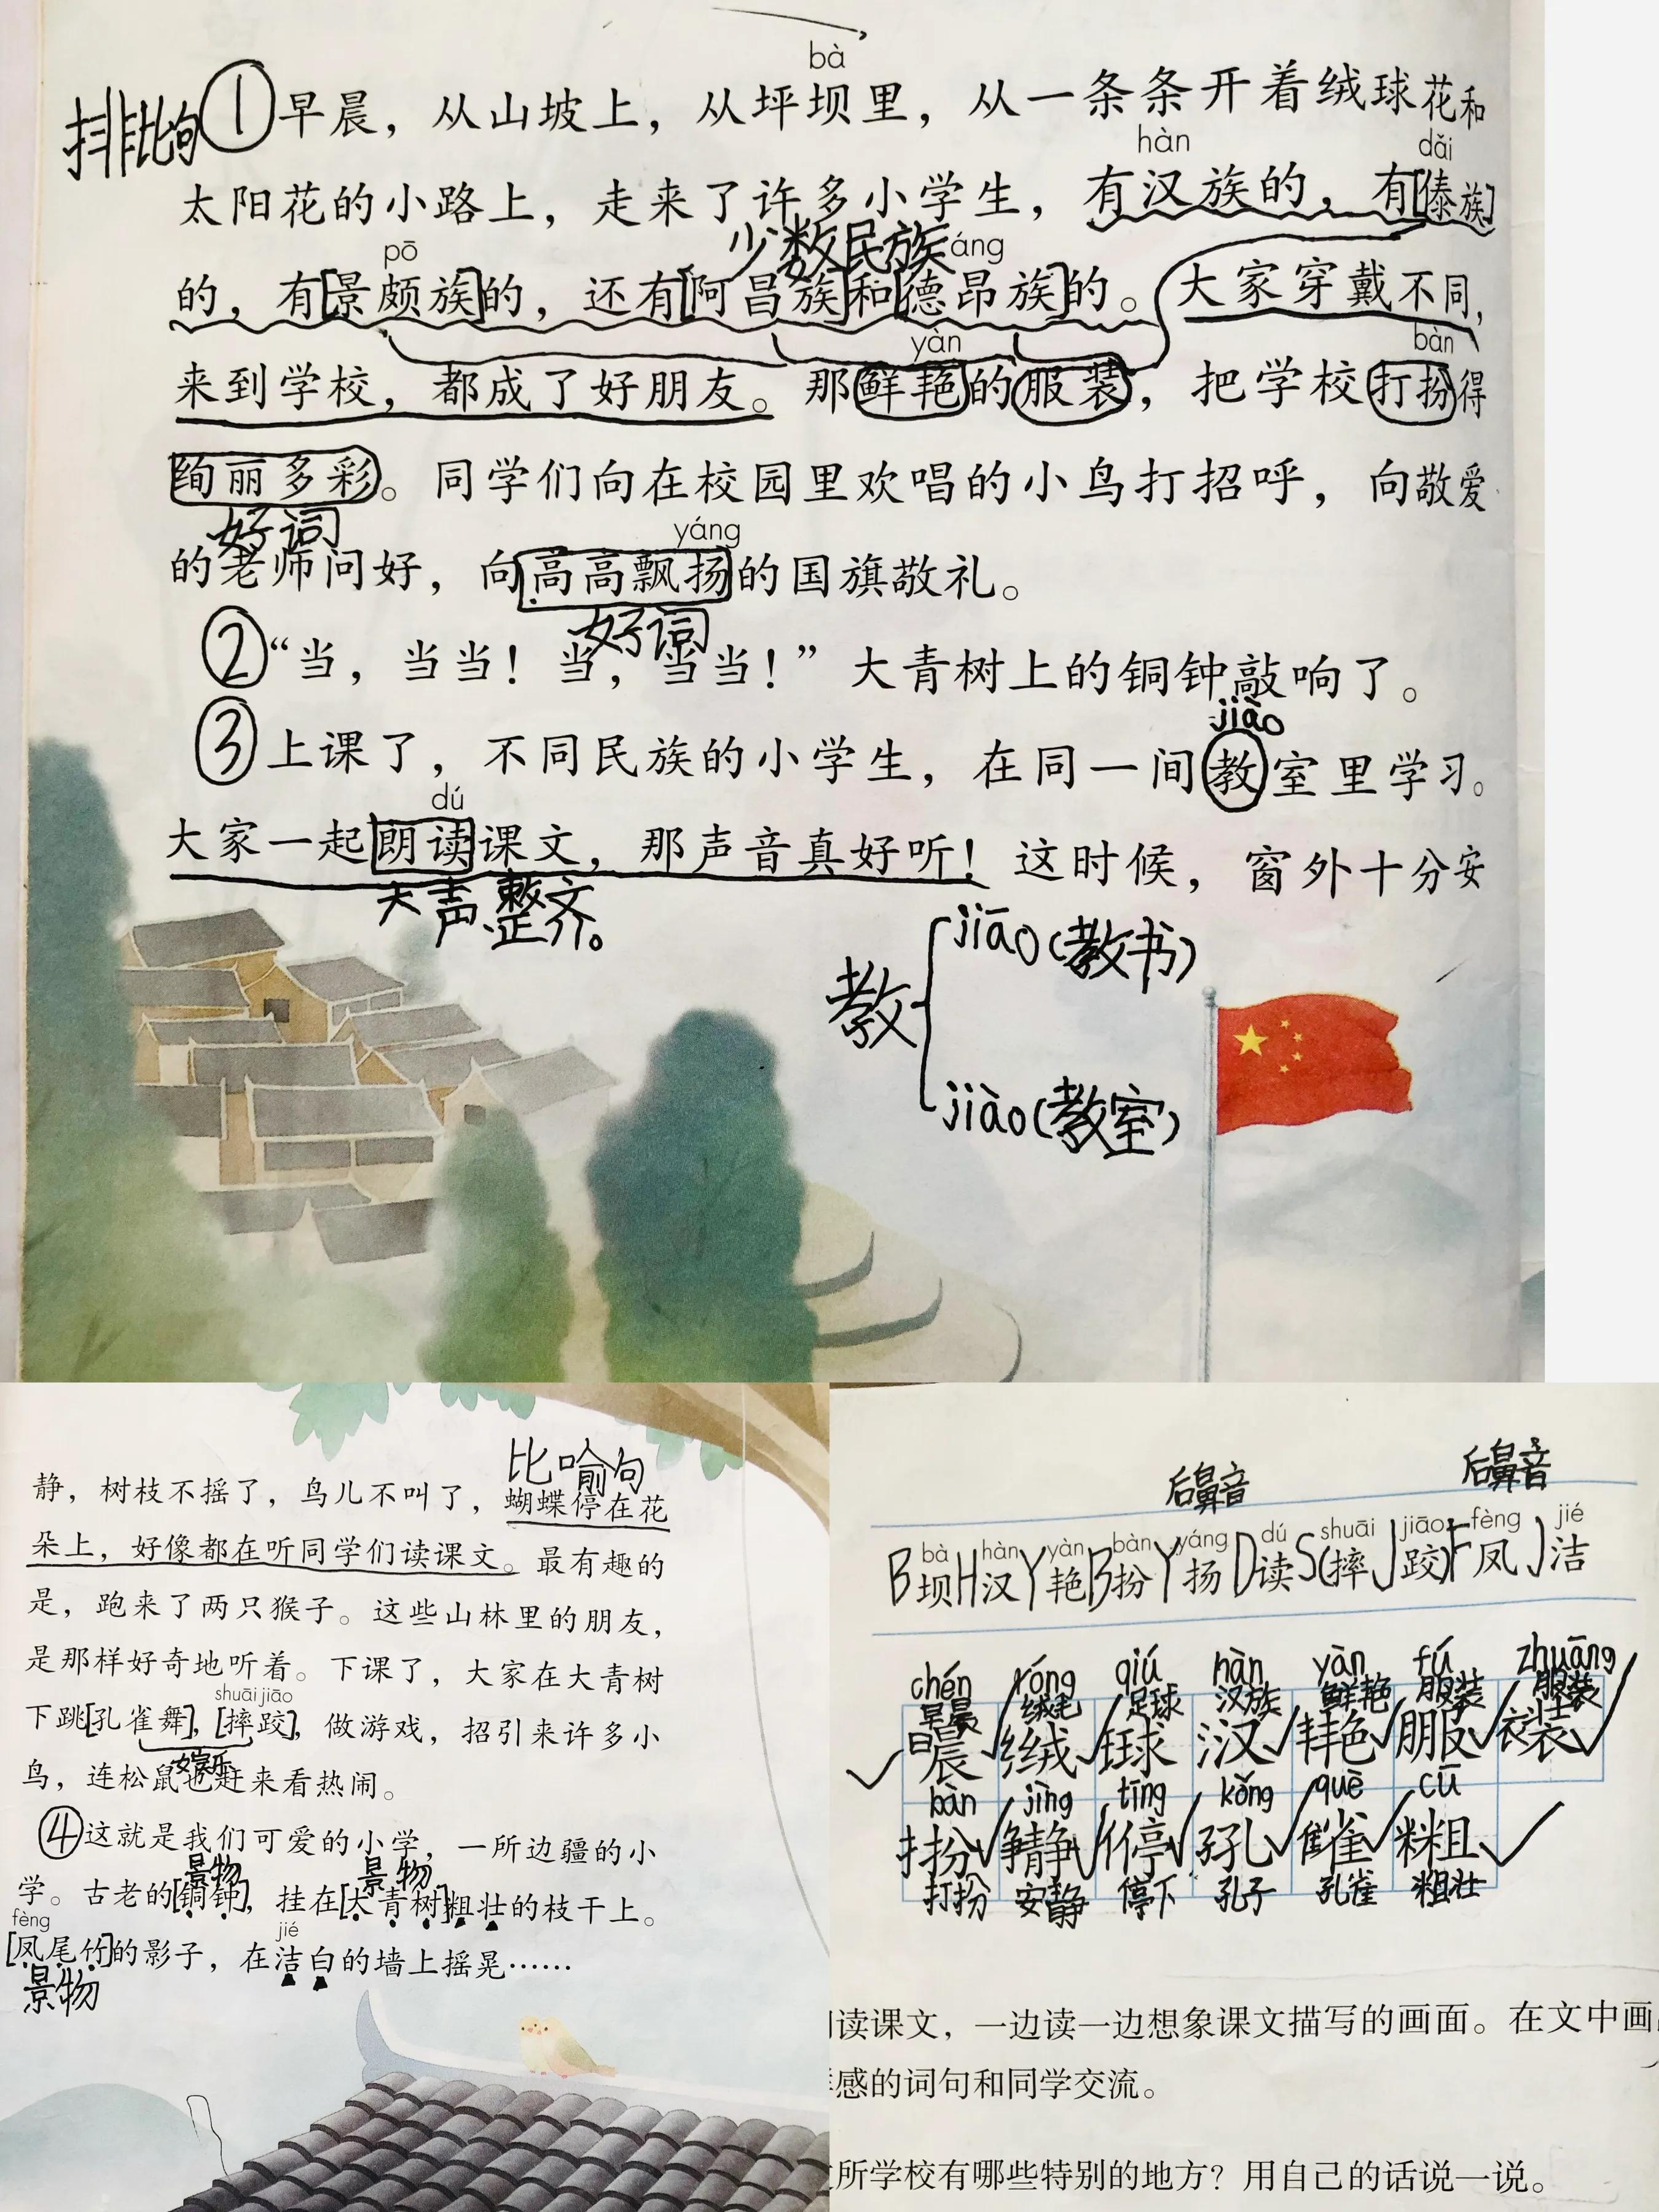 bà
排比句①早晨，从山坡上，从坪坝里，从一条条开着绒球花和
hàn dǎi
太阳花的小路上，走来了许多小学生，有汉族的，有[傣族]
pō 少数民族 áng
的，有[景颇族]的，还有[阿昌族]和[德昂族]的。大家穿戴不同，
yàn bàn
来到学校，都成了好朋友。那鲜艳的服装，把学校打扮得
绚丽多彩。同学们向在校园里欢唱的小鸟打招呼，向敬爱
好词 yáng
的老师问好，向高高飘扬的国旗敬礼。
好词
②“当，当当！当，当当！”大青树上的铜钟敲响了。
jiào
③上课了，不同民族的小学生，在同一间教室里学习。
dú
大家一起朗读课文，那声音真好听！这时候，窗外十分安
大声、整齐。
jiāo（教书）
教
jiào（教室）
比喻句
静，树枝不摇了，鸟儿不叫了，蝴蝶停在花
朵上，好像都在听同学们读课文。最有趣的
是，跑来了两只猴子。这些山林里的朋友，
是那样好奇地听着。下课了，大家在大青树
shuāi jiāo
下跳[孔雀舞]，[摔跤]，做游戏，招引来许多小
娱乐
鸟，连松鼠也赶来看热闹。
④这就是我们可爱的小学，一所边疆的小
景物 景物
学。古老的[铜钟]，挂在[大青树]粗壮的枝干上。
fèng jié
[凤尾竹]的影子，在洁白的墙上摇晃……
景物
后鼻音 后鼻音
bà hàn yàn bàn yáng dú shuāi jiāo fèng jié
B坝H汉Y艳B扮Y扬D读S(摔J跤)F凤J洁
chén róng qiú hàn yàn fú zhuāng
早晨 绒毛 足球 汉族 鲜艳 服装 服装
日晨 纟绒 王球 氵汉 丰艳 月服 壮衣装
bàn jìng tíng kǒng què cū
扌扮 争静 亻停 子孔 雀 米粗
打扮 安静 停下 孔子 孔雀 粗壮
读课文，一边读一边想象课文描写的画面。在文中画
感的词句和同学交流。
所学校有哪些特别的地方？用自己的话说一说。